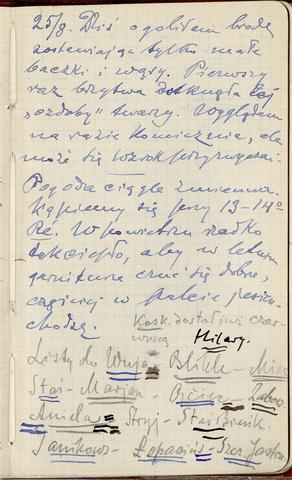 25/8. Dziś ogoliłem brodę
zostawiając tylko małe
baczki i wąsy. Pierwszy
raz brzytwa dotknęła tej
„ozdoby" twarzy. Wyglądam
na razie komicznie, ale
może się wzrok przyzwyczai.
Pogoda ciągle zmienna.
Kąpiemy się przy 13–14°
Ré. W powietrzu rzadko
tak ciepło, aby w letnim
garniturze czuć się dobrze,
częściej w palcie jesien.
chodzę.
Kask. dostał już czer-
woną
Hilary.
Listy do Wuja – Blikle – Miec
Staś – Marjan – Ojciec – Zabor
Aniela – Stryj – Staś Bronik.
Janikows – Łopaciń – Szcz. Jastrz